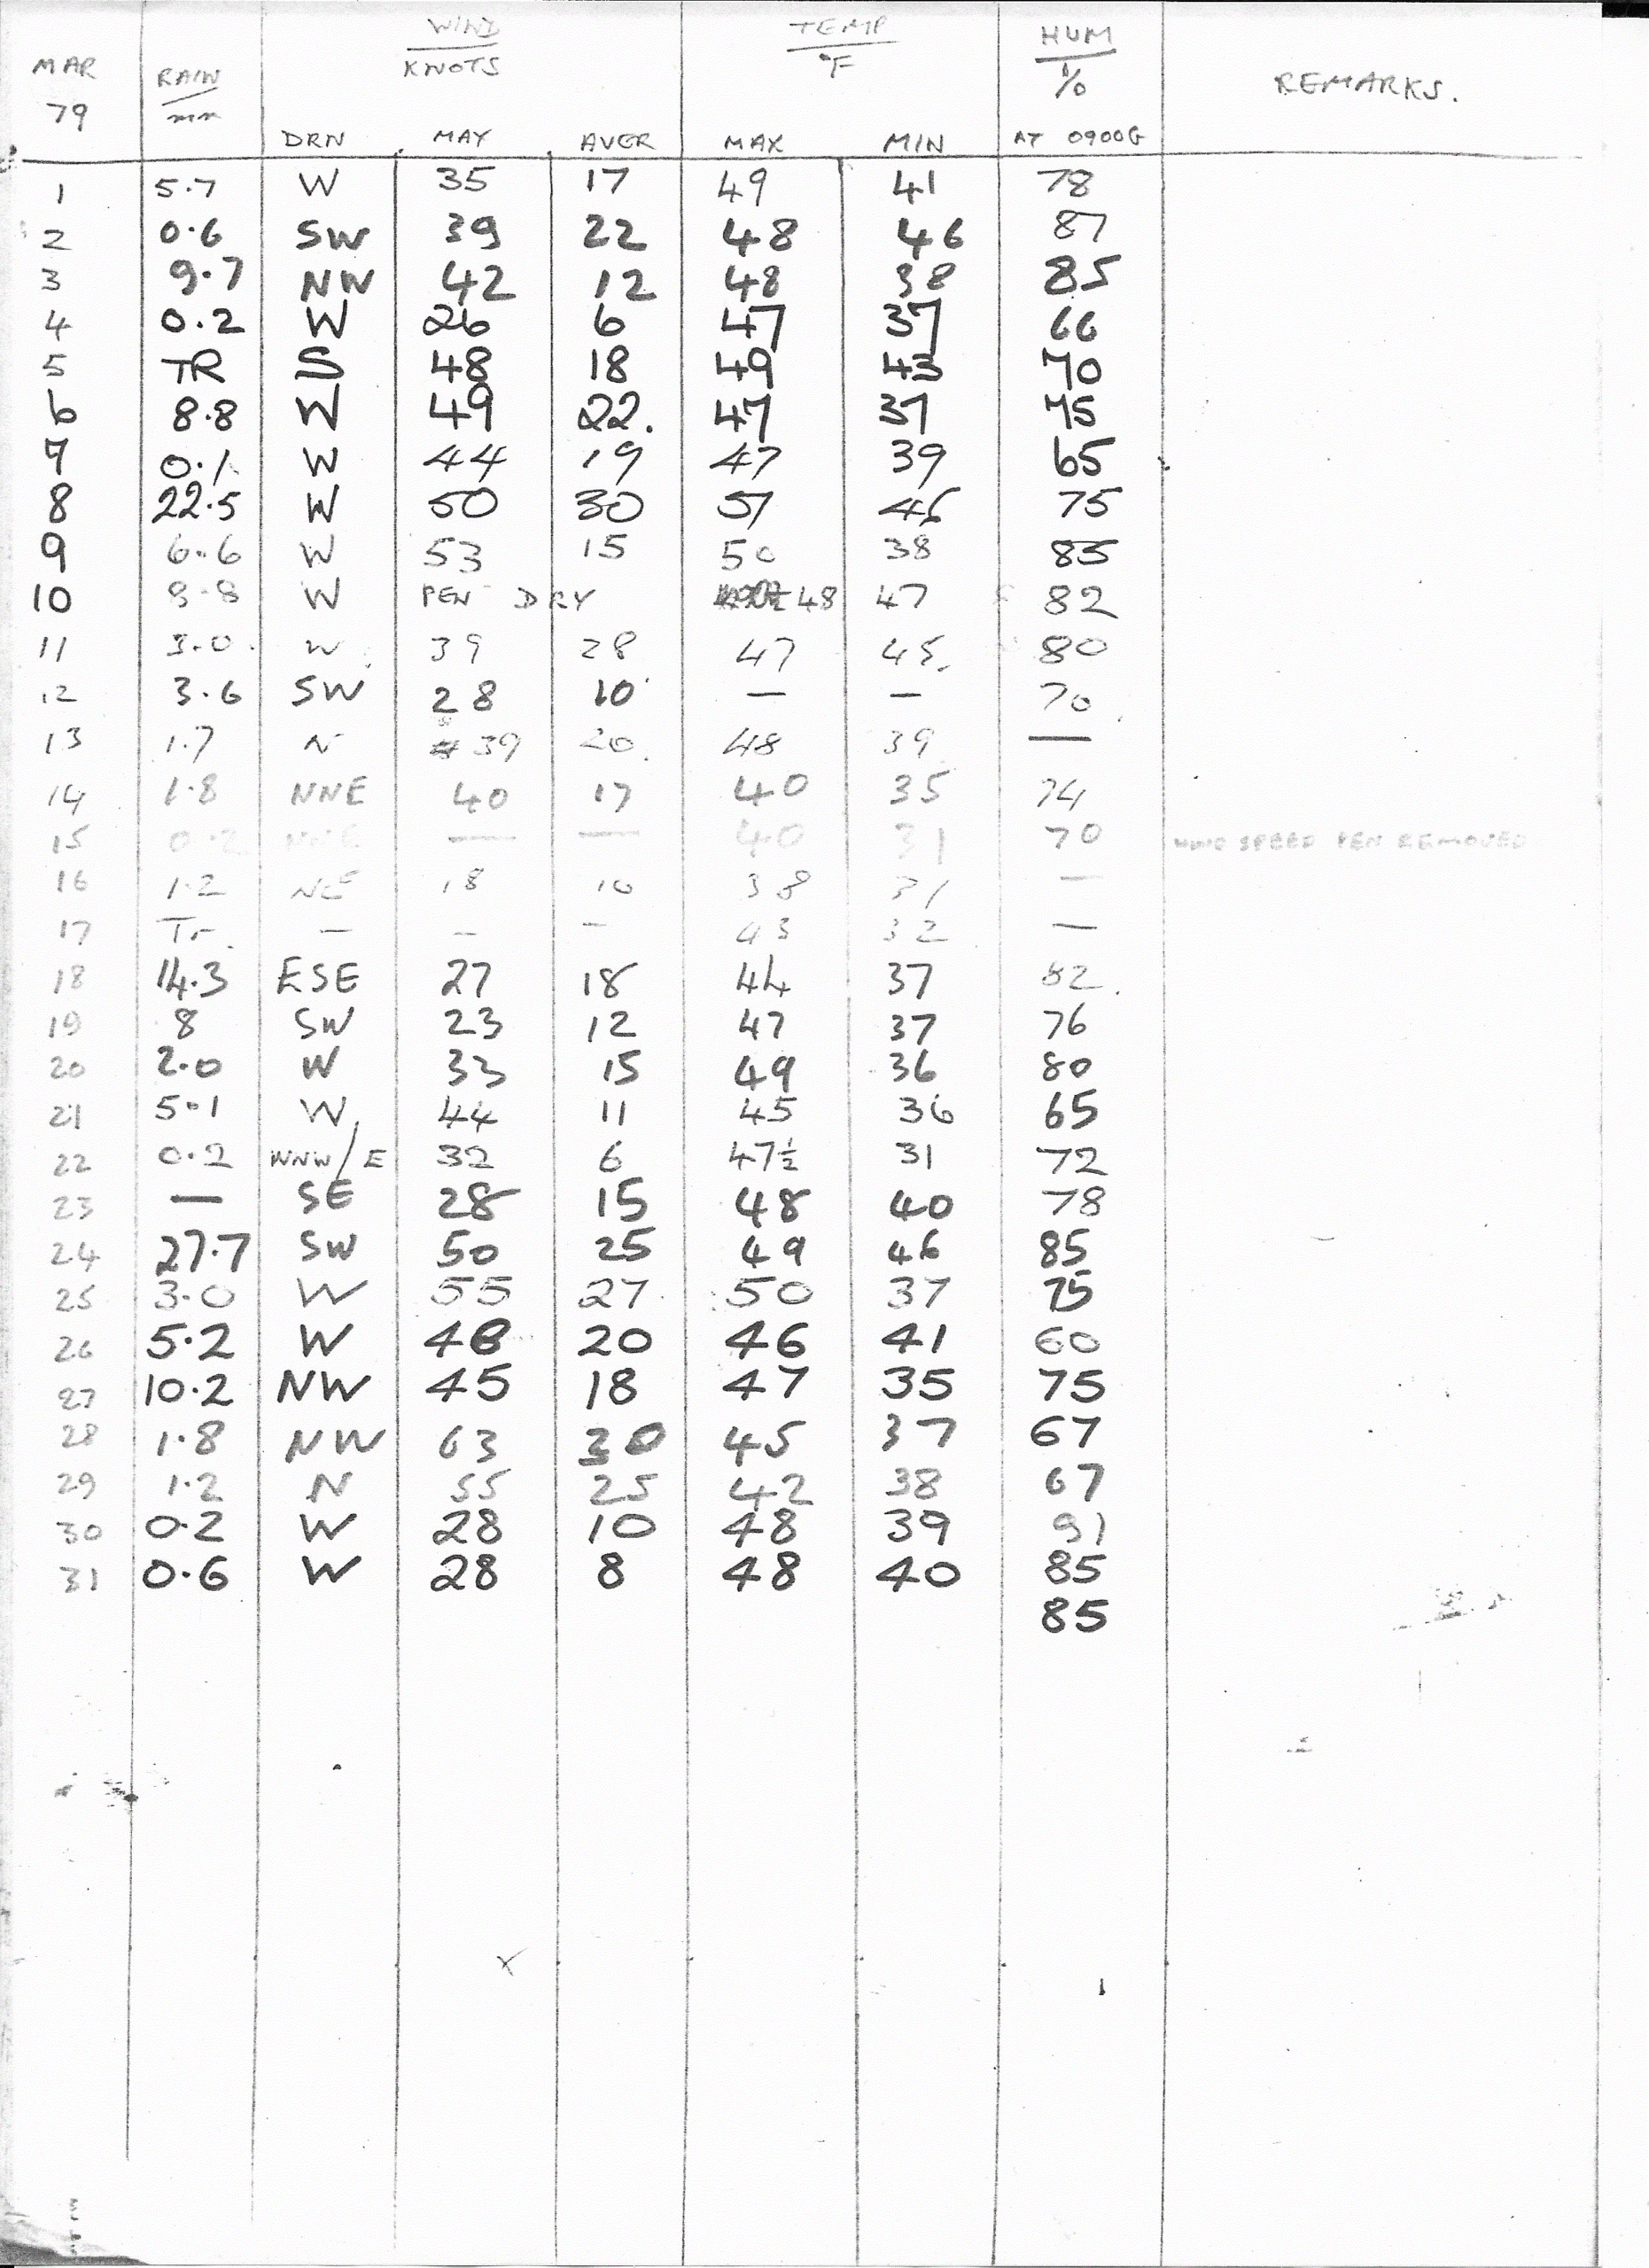 WIND TEMP HUM
MAR RAIN KNOTS °F % REMARKS.
79 mm
DRN MAX AVER MAX MIN AT 0900G
1 5.7 W 35 17 49 41 78
2 0.6 SW 39 22 48 46 87
3 9.7 NW 42 12 48 38 85
4 0.2 W 26 6 47 37 66
5 TR S 48 18 49 43 70
6 8.8 W 49 22. 47 37 75
7 0.1 W 44 19 47 39 65
8 22.5 W 50 30 51 45 75
9 6.6 W 53 15 50 38 85
10 9.8 W PEN DRY 48 47 82
11 3.0 W 39 28 47 45. 80
12 3.6 SW 28 10 — — 70
13 1.7 N 39 20. 48 39 —
14 1.8 NNE 40 17 40 35 74
15 0.2 NNE — — 40 31 70 WIND SPEED PEN REMOVED
16 1.2 NE 18 10 38 31 —
17 Tr — — — 43 32 —
18 14.3 ESE 27 18 44 37 82.
19 8 SW 23 12 47 37 76
20 2.0 W 33 15 49 36 80
21 5.1 W 44 11 45 36 65
22 0.2 WNW/E 32 6 47½ 31 72
23 — SE 28 15 48 40 78
24 27.7 SW 50 25 49 46 85
25 3.0 W 55 27 50 37 75
26 5.2 W 48 20 46 41 60
27 10.2 NW 45 18 47 35 75
28 1.8 NW 63 30 45 37 67
29 1.2 N 55 25 42 38 67
30 0.2 W 28 10 48 39 91
31 0.6 W 28 8 48 40 85
85